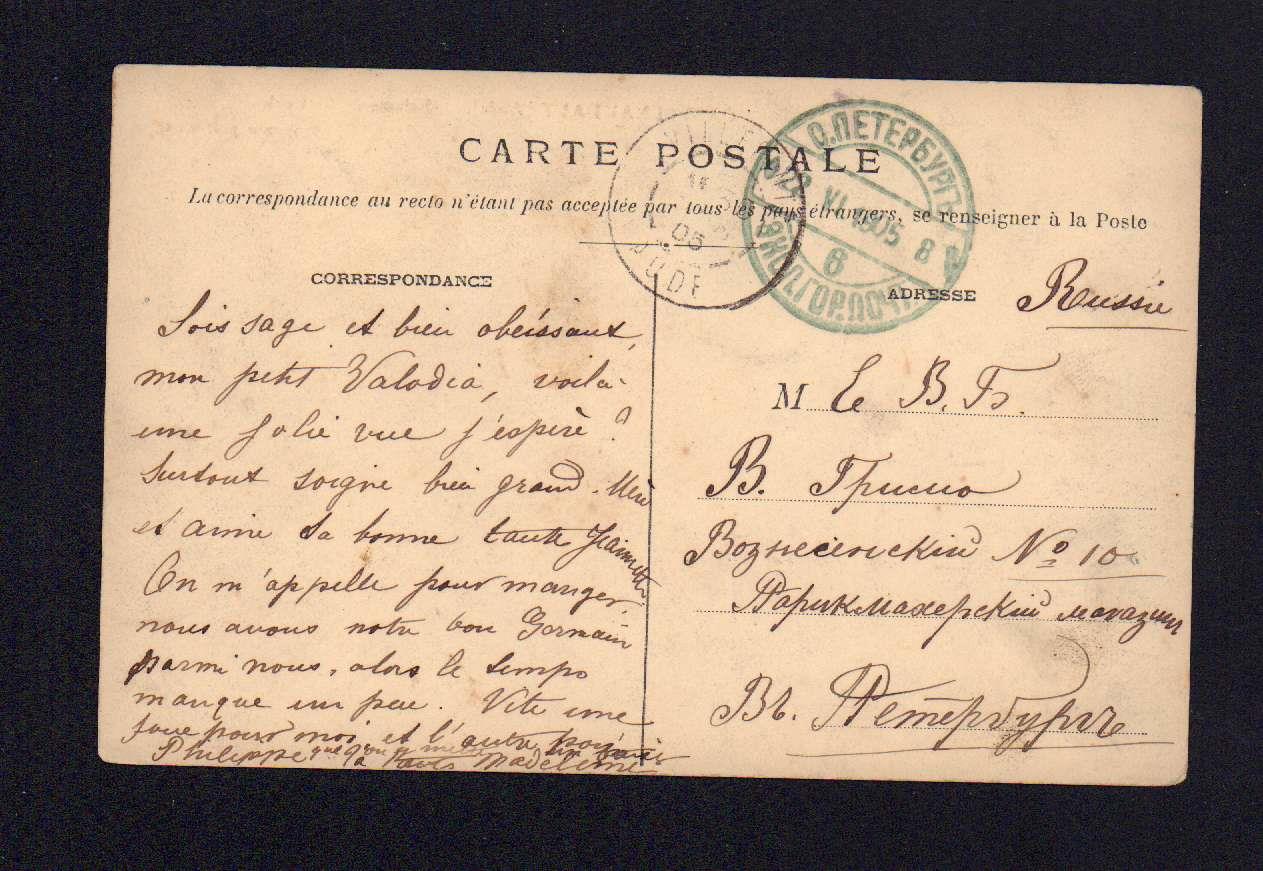 CARTE POSTALE
La correspondance au recto n'étant pas acceptée par tous les pays étrangers, se renseigner à la Poste
С.ПЕТЕРБУРГЪ
VI 1905 8
6
ГОР.ПОЧТ
05
CORRESPONDANCE
Sois sage et bien obéissant,
mon petit Valodia, voilà
une jolie vue j'espère?
Surtout soigne bien grand. Mère
et aime ta bonne tante Jeannette
On m'appelle pour manger.
nous avons notre bon Germain
parmi nous, alors le temps
manque un peu. Vite une
joue pour moi, et l'autre pour
Philippe Madeleine
ADRESSE
Russie
M Е В. Б.
В. Гризио
Вознесенский № 10
Парикмахерскій магазин
Въ. Петербургъ